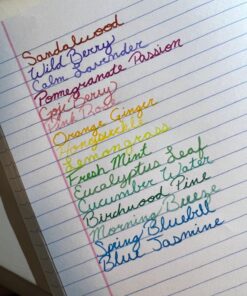 Sandalwood
Wild Berry
Calm Lavender
Pomegranate Passion
Goji Berry
Pink Rock
Orange Ginger
Honeysuckle
Lemongrass
Fresh Mint
Eucalyptus Leaf
Cucumber Water
Birchwood Pine
Morning Breeze
Spring Bluebell
Blue Jasmine